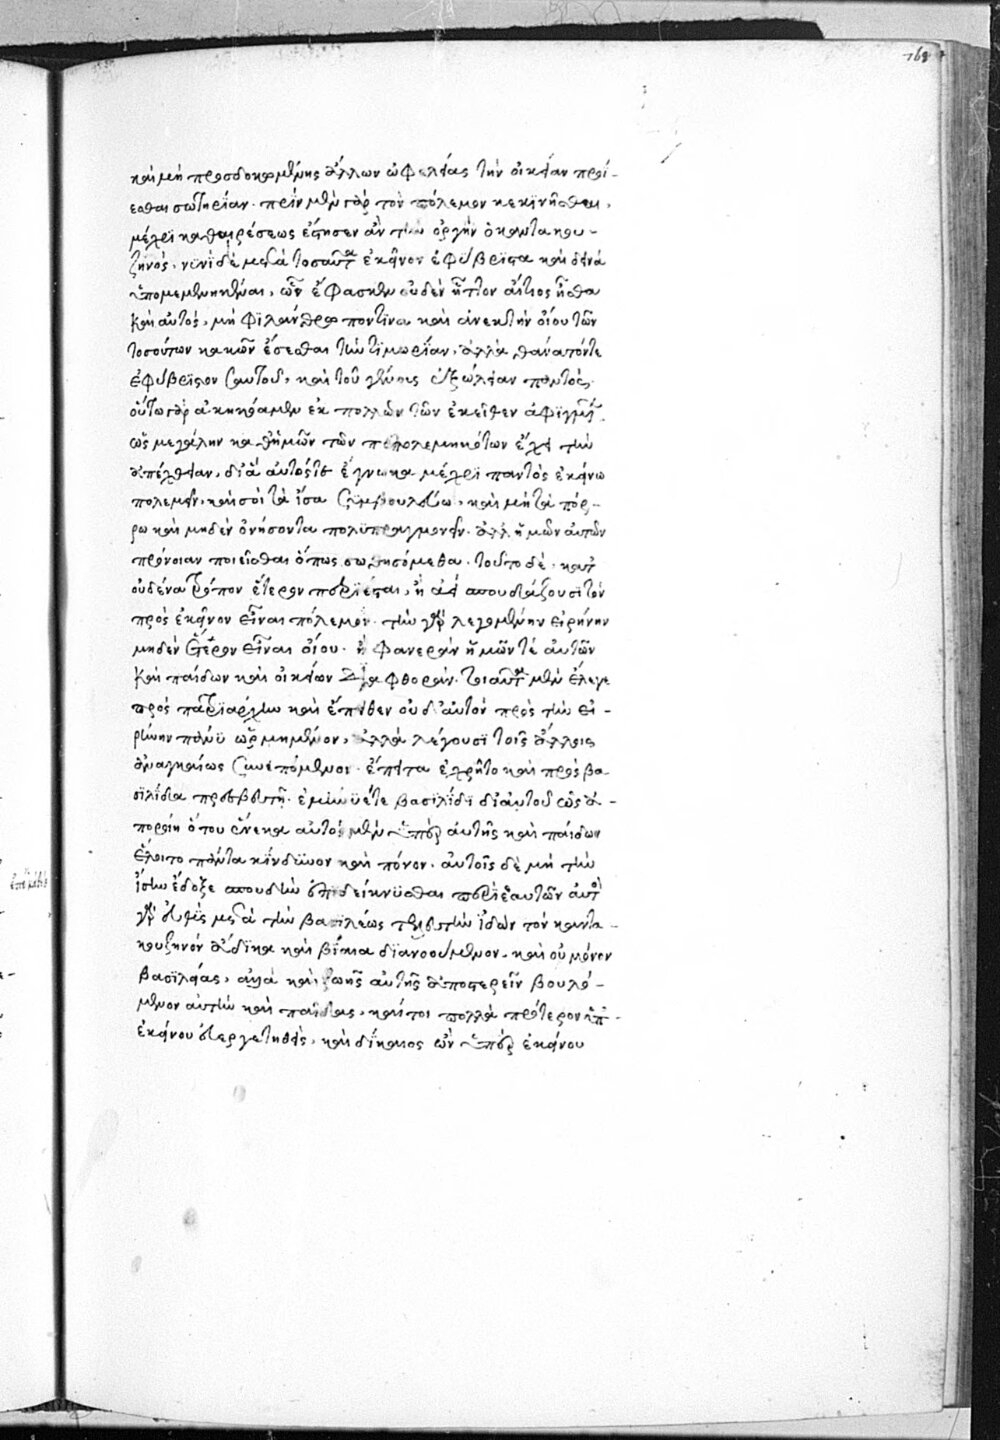 168
καὶ μὴ προσδοκωμένης ἄλλων ὠφελείας τὴν οἰκείαν προΐ-
εσθαι σωτηρίαν. πρὶν μὲν γὰρ τὸν πόλεμον κεκινῆσθαι,
μέχρι καθαιρέσεως ἔστησεν ἂν τὴν ὀργὴν ὁ καντακου-
ζηνός, νυνὶ δὲ μετὰ τοσαῦτα ἐκεῖνον ἐφύβρισα καὶ δεινὰ
ὑπομεμενηκέναι, ὧν ἔφασκεν οὐδὲν ἧττον αἴτιος ἦσθα
καὶ αὐτός, μὴ φιλάνθρωπόν τινα καὶ ἀνεκτὴν οἴου τῶν
τοσούτων κακῶν ἔσεσθαι τὴν τιμωρίαν, ἀλλὰ θάνατόν τε
ἐφύβριστον σαυτοῦ, καὶ τοῦ γένους ἐξώλειαν παντός.
οὕτω γὰρ ἀκηκόαμεν ἐκ πολλῶν τῶν ἐκεῖθεν ἀφιγμένων
ὡς μεγάλην καθ' ἡμῶν τῶν πεπολεμηκότων ἔχει τὴν
ἀπέχθειαν, δι' ἃ αὐτός τε ἔγνωκα μέχρι παντὸς ἐκείνῳ
πολεμεῖν, καὶ σοὶ τὰ ἴσα συμβουλεύω, καὶ μὴ τὰ πόρ-
ρω καὶ μηδὲν ὀνήσοντα πολυπραγμονεῖν. ἀλλ' ἡμῶν αὐτῶν
πρόνοιαν ποιεῖσθαι ὅπως σωθησόμεθα. τοῦτο δὲ, κατ'
οὐδένα τρόπον ἕτερον περιέσται, ἢ ἀεὶ σπουδάζουσι τὸν
πρὸς ἐκεῖνον εἶναι πόλεμον. τὴν γὰρ λεγομένην εἰρήνην
μηδὲν ἕτερον εἶναι οἴου. ἢ φανερὰν ἡμῶν τε αὐτῶν
καὶ παίδων καὶ οἰκείων διαφθοράν. τοιαῦτα μὲν ἔλεγε
πρὸς πατριάρχην καὶ ἔπειθεν οὐδ' αὐτὸν πρὸς τὴν εἰ-
ρήνην πάνυ ὡρμημένον, ἀλλὰ λέγουσι τοῖς ἄλλοις
ἀναγκαίως συνεπόμενος. ἔπειτα ἐχρῆτο καὶ πρὸς βα-
σιλίδα πρεσβευτῇ. ἐμήνυέ τε βασιλίδι δι' αὐτοῦ ὡς ἀ-
ποροίη ὅτου ἕνεκα αὐτὸς μὲν ὑπὲρ αὐτῆς καὶ παίδων
ἕλοιτο πάντα κίνδυνον καὶ πόνον. αὐτοῖς δὲ μὴ τὴν
ἴσην ἔδοξε σπουδὴν ἐπιδείκνυσθαι περὶ ἑαυτῶν αὐτὸς
γὰρ εὐθὺς μετὰ τὴν βασιλέως τελευτὴν ἰδὼν τὸν καντα-
κουζηνὸν ἄδικα καὶ βίαια διανοούμενον. καὶ οὐ μόνον
βασιλείας, ἀλλὰ καὶ ζωῆς αὐτῆς ἀποστερεῖν βουλό-
μενον αὐτὴν καὶ παῖδας, καίτοι πολλὰ πρότερον ὑπ'
ἐκείνου εὐεργετηθεὶς, καὶ δίκαιος ὢν ὑπὲρ ἐκείνου